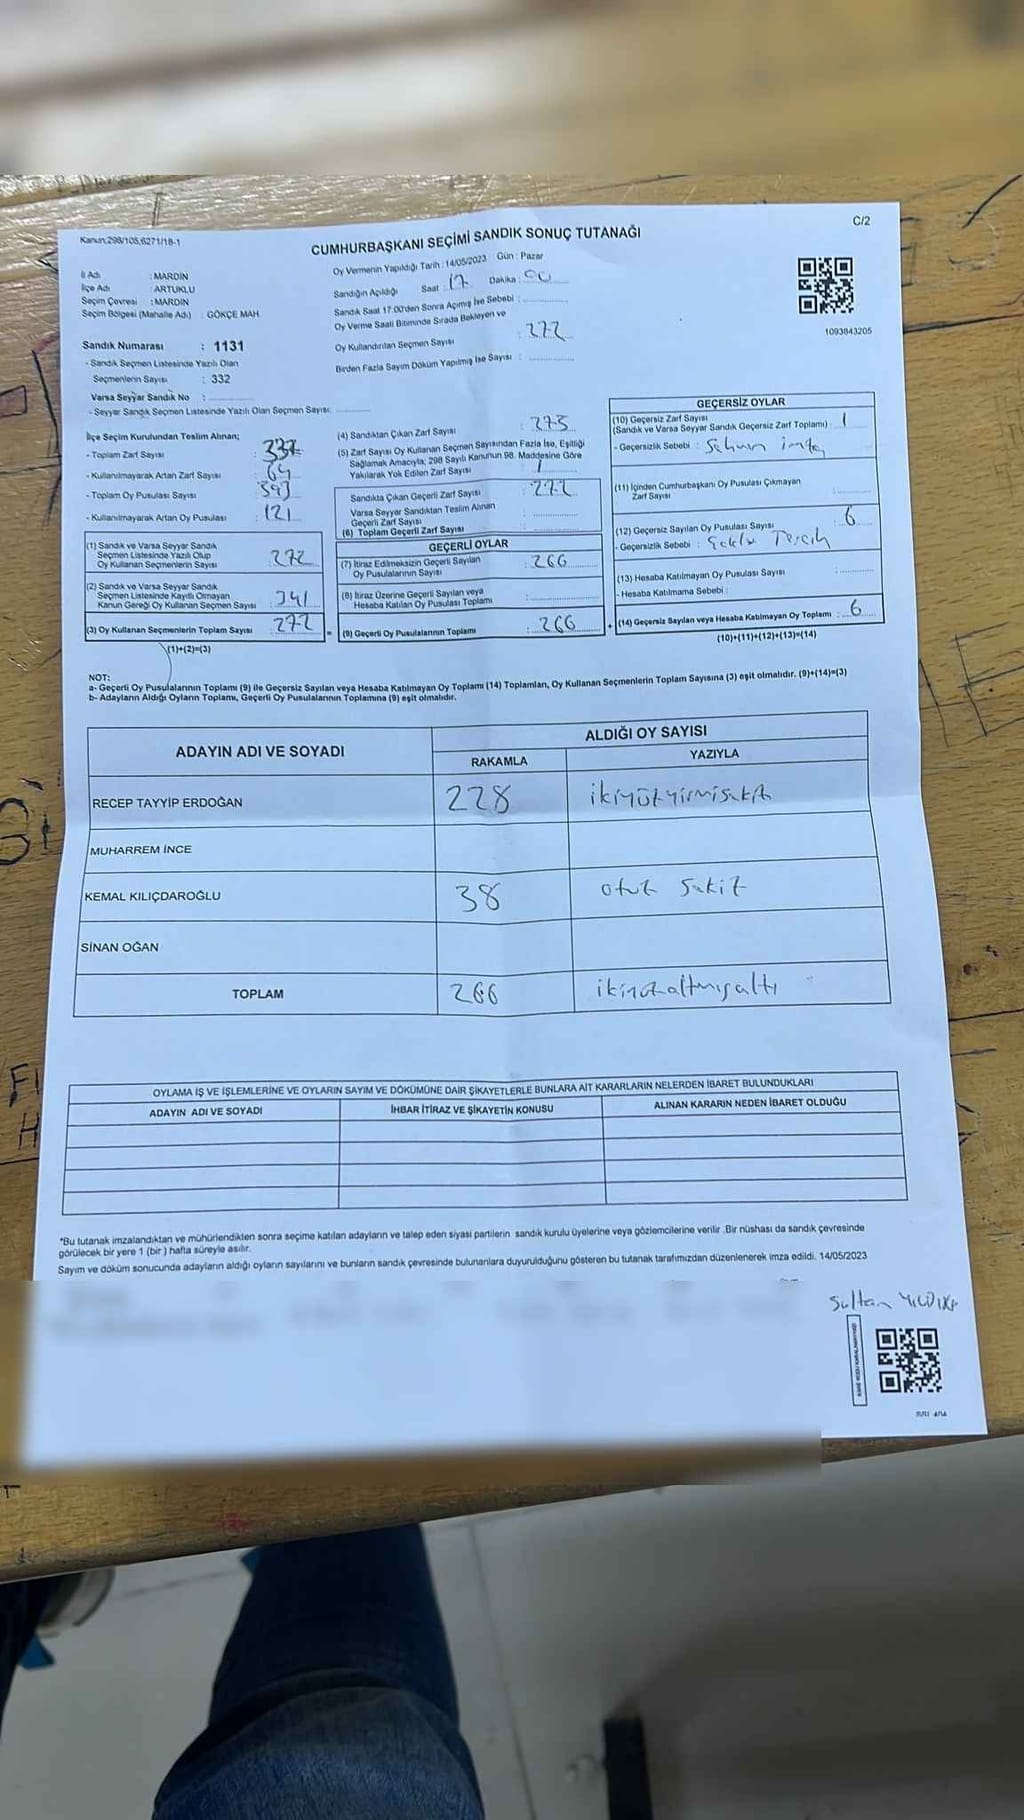 Kanun;298/105,6271/18-1
C/2
CUMHURBAŞKANI SEÇİMİ SANDIK SONUÇ TUTANAĞI
İl Adı : MARDİN
İlçe Adı : ARTUKLU
Seçim Çevresi : MARDİN
Seçim Bölgesi (Mahalle Adı) : GÖKÇE MAH.
Sandık Numarası : 1131
- Sandık Seçmen Listesinde Yazılı Olan
Seçmenlerin Sayısı : 332
Varsa Seyyar Sandık No :
- Seyyar Sandık Seçmen Listesinde Yazılı Olan Seçmen Sayısı:
Oy Vermenin Yapıldığı Tarih : 14/05/2023 Gün : Pazar
Sandığın Açıldığı Saat 17 Dakika : 00
Sandık Saat 17.00'den Sonra Açımış İse Sebebi :
Oy Verme Saati Bitiminde Sırada Bekleyen ve
Oy Kullandırılan Seçmen Sayısı : 272
Birden Fazla Sayım Döküm Yapılmış İse Sayısı :
1093843205
İlçe Seçim Kurulundan Teslim Alınan;
- Toplam Zarf Sayısı : 337
- Kullanılmayarak Artan Zarf Sayısı : 64
- Toplam Oy Pusulası Sayısı : 393
- Kullanılmayarak Artan Oy Pusulası : 121
(1) Sandık ve Varsa Seyyar Sandık
Seçmen Listesinde Yazılı Olup
Oy Kullanan Seçmenlerin Sayısı : 272
(2) Sandık ve Varsa Seyyar Sandık
Seçmen Listesinde Kayıtlı Olmayan
Kanun Gereği Oy Kullanan Seçmen Sayısı : 341
(3) Oy Kullanan Seçmenlerin Toplam Sayısı : 272
(1)+(2)=(3)
(4) Sandıktan Çıkan Zarf Sayısı : 273
(5) Zarf Sayısı Oy Kullanan Seçmen Sayısından Fazla İse, Eşitliği
Sağlamak Amacıyla; 298 Sayılı Kanunun 98. Maddesine Göre
Yakılarak Yok Edilen Zarf Sayısı : 1
Sandıkta Çıkan Geçerli Zarf Sayısı : 272
Varsa Seyyar Sandıktan Teslim Alınan
Geçerli Zarf Sayısı :
(6) Toplam Geçerli Zarf Sayısı :
GEÇERLİ OYLAR
(7) İtiraz Edilmeksizin Geçerli Sayılan
Oy Pusulalarının Sayısı : 266
(8) İtiraz Üzerine Geçerli Sayılan veya
Hesaba Katılan Oy Pusulası Toplamı :
= (9) Geçerli Oy Pusulalarının Toplamı : 266
GEÇERSİZ OYLAR
(10) Geçersiz Zarf Sayısı
(Sandık ve Varsa Seyyar Sandık Geçersiz Zarf Toplamı) : 1
- Geçersizlik Sebebi :
(11) İçinden Cumhurbaşkanı Oy Pusulası Çıkmayan
Zarf Sayısı :
(12) Geçersiz Sayılan Oy Pusulası Sayısı : 6
- Geçersizlik Sebebi : Tercih
(13) Hesaba Katılmayan Oy Pusulası Sayısı :
- Hesaba Katılmama Sebebi :
+ (14) Geçersiz Sayılan veya Hesaba Katılmayan Oy Toplamı : 6
(10)+(11)+(12)+(13)=(14)
NOT:
a- Geçerli Oy Pusulalarının Toplamı (9) ile Geçersiz Sayılan veya Hesaba Katılmayan Oy Toplamı (14) Toplamları, Oy Kullanan Seçmenlerin Toplam Sayısına (3) eşit olmalıdır. (9)+(14)=(3)
b- Adayların Aldığı Oyların Toplamı, Geçerli Oy Pusulalarının Toplamına (9) eşit olmalıdır.
ADAYIN ADI VE SOYADI
ALDIĞI OY SAYISI
RAKAMLA YAZIYLA
RECEP TAYYİP ERDOĞAN 228 ikiyüzyirmisekiz
MUHARREM İNCE
KEMAL KILIÇDAROĞLU 38 otuz sekiz
SİNAN OĞAN
TOPLAM 266 ikiyüzaltmışaltı
OYLAMA İŞ VE İŞLEMLERİNE VE OYLARIN SAYIM VE DÖKÜMÜNE DAİR ŞİKAYETLERLE BUNLARA AİT KARARLARIN NELERDEN İBARET BULUNDUKLARI
ADAYIN ADI VE SOYADI İHBAR İTİRAZ VE ŞİKAYETİN KONUSU ALINAN KARARIN NEDEN İBARET OLDUĞU
*Bu tutanak imzalandıktan ve mühürlendikten sonra seçime katılan adayların ve talep eden siyasi partilerin sandık kurulu üyelerine veya gözlemcilerine verilir .Bir nüshası da sandık çevresinde
görülecek bir yere 1 (bir ) hafta süreyle asılır.
Sayım ve döküm sonucunda adayların aldığı oyların sayılarını ve bunların sandık çevresinde bulunanlara duyurulduğunu gösteren bu tutanak tarafımızdan düzenlenerek imza edildi. 14/05/2023
Sultan